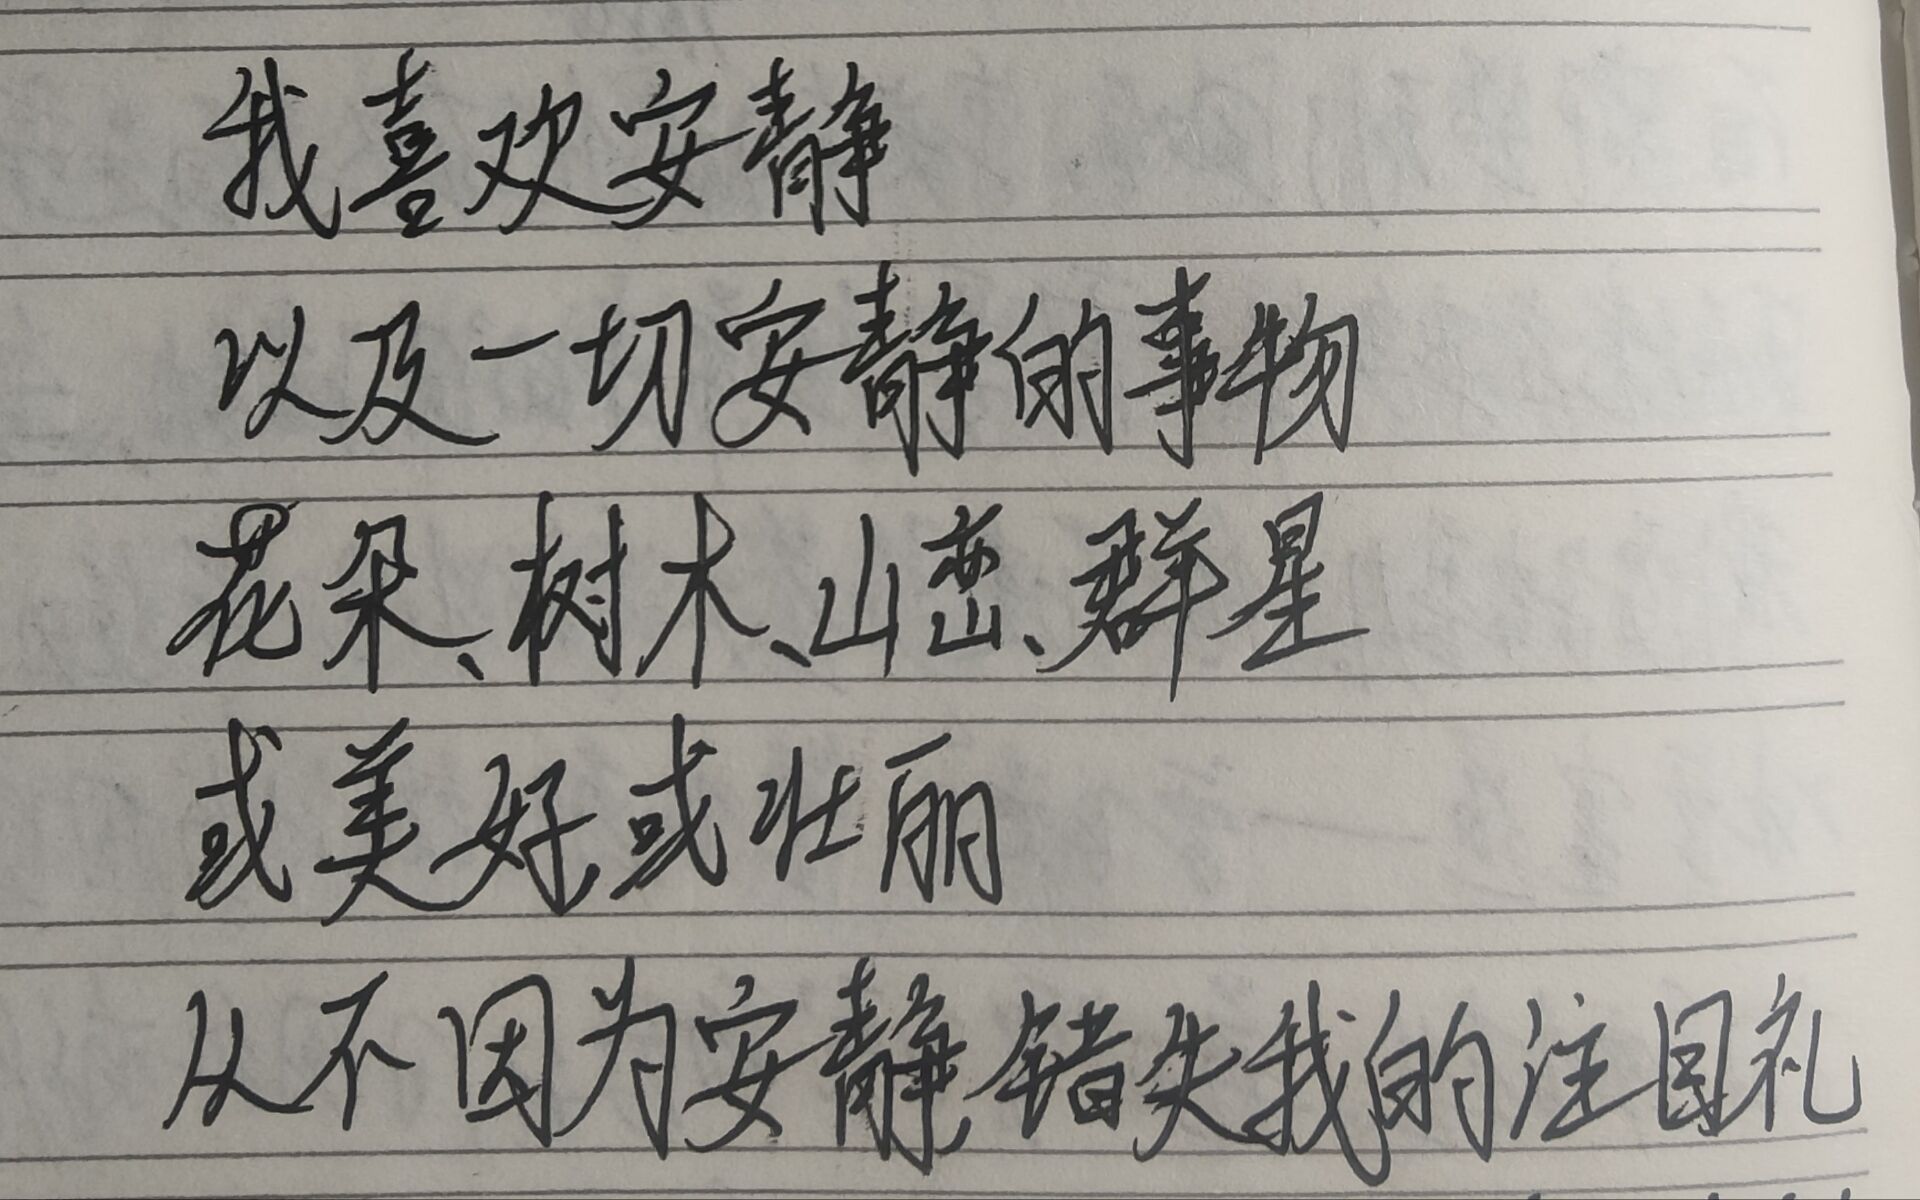 我喜欢安静
以及一切安静的事物
花朵、树木、山峦、群星
或美好,或壮丽
从不因为安静,错失我的注目礼